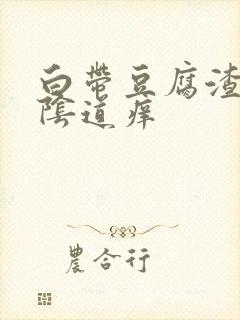 白帶豆腐渣
陰道痒
農合行